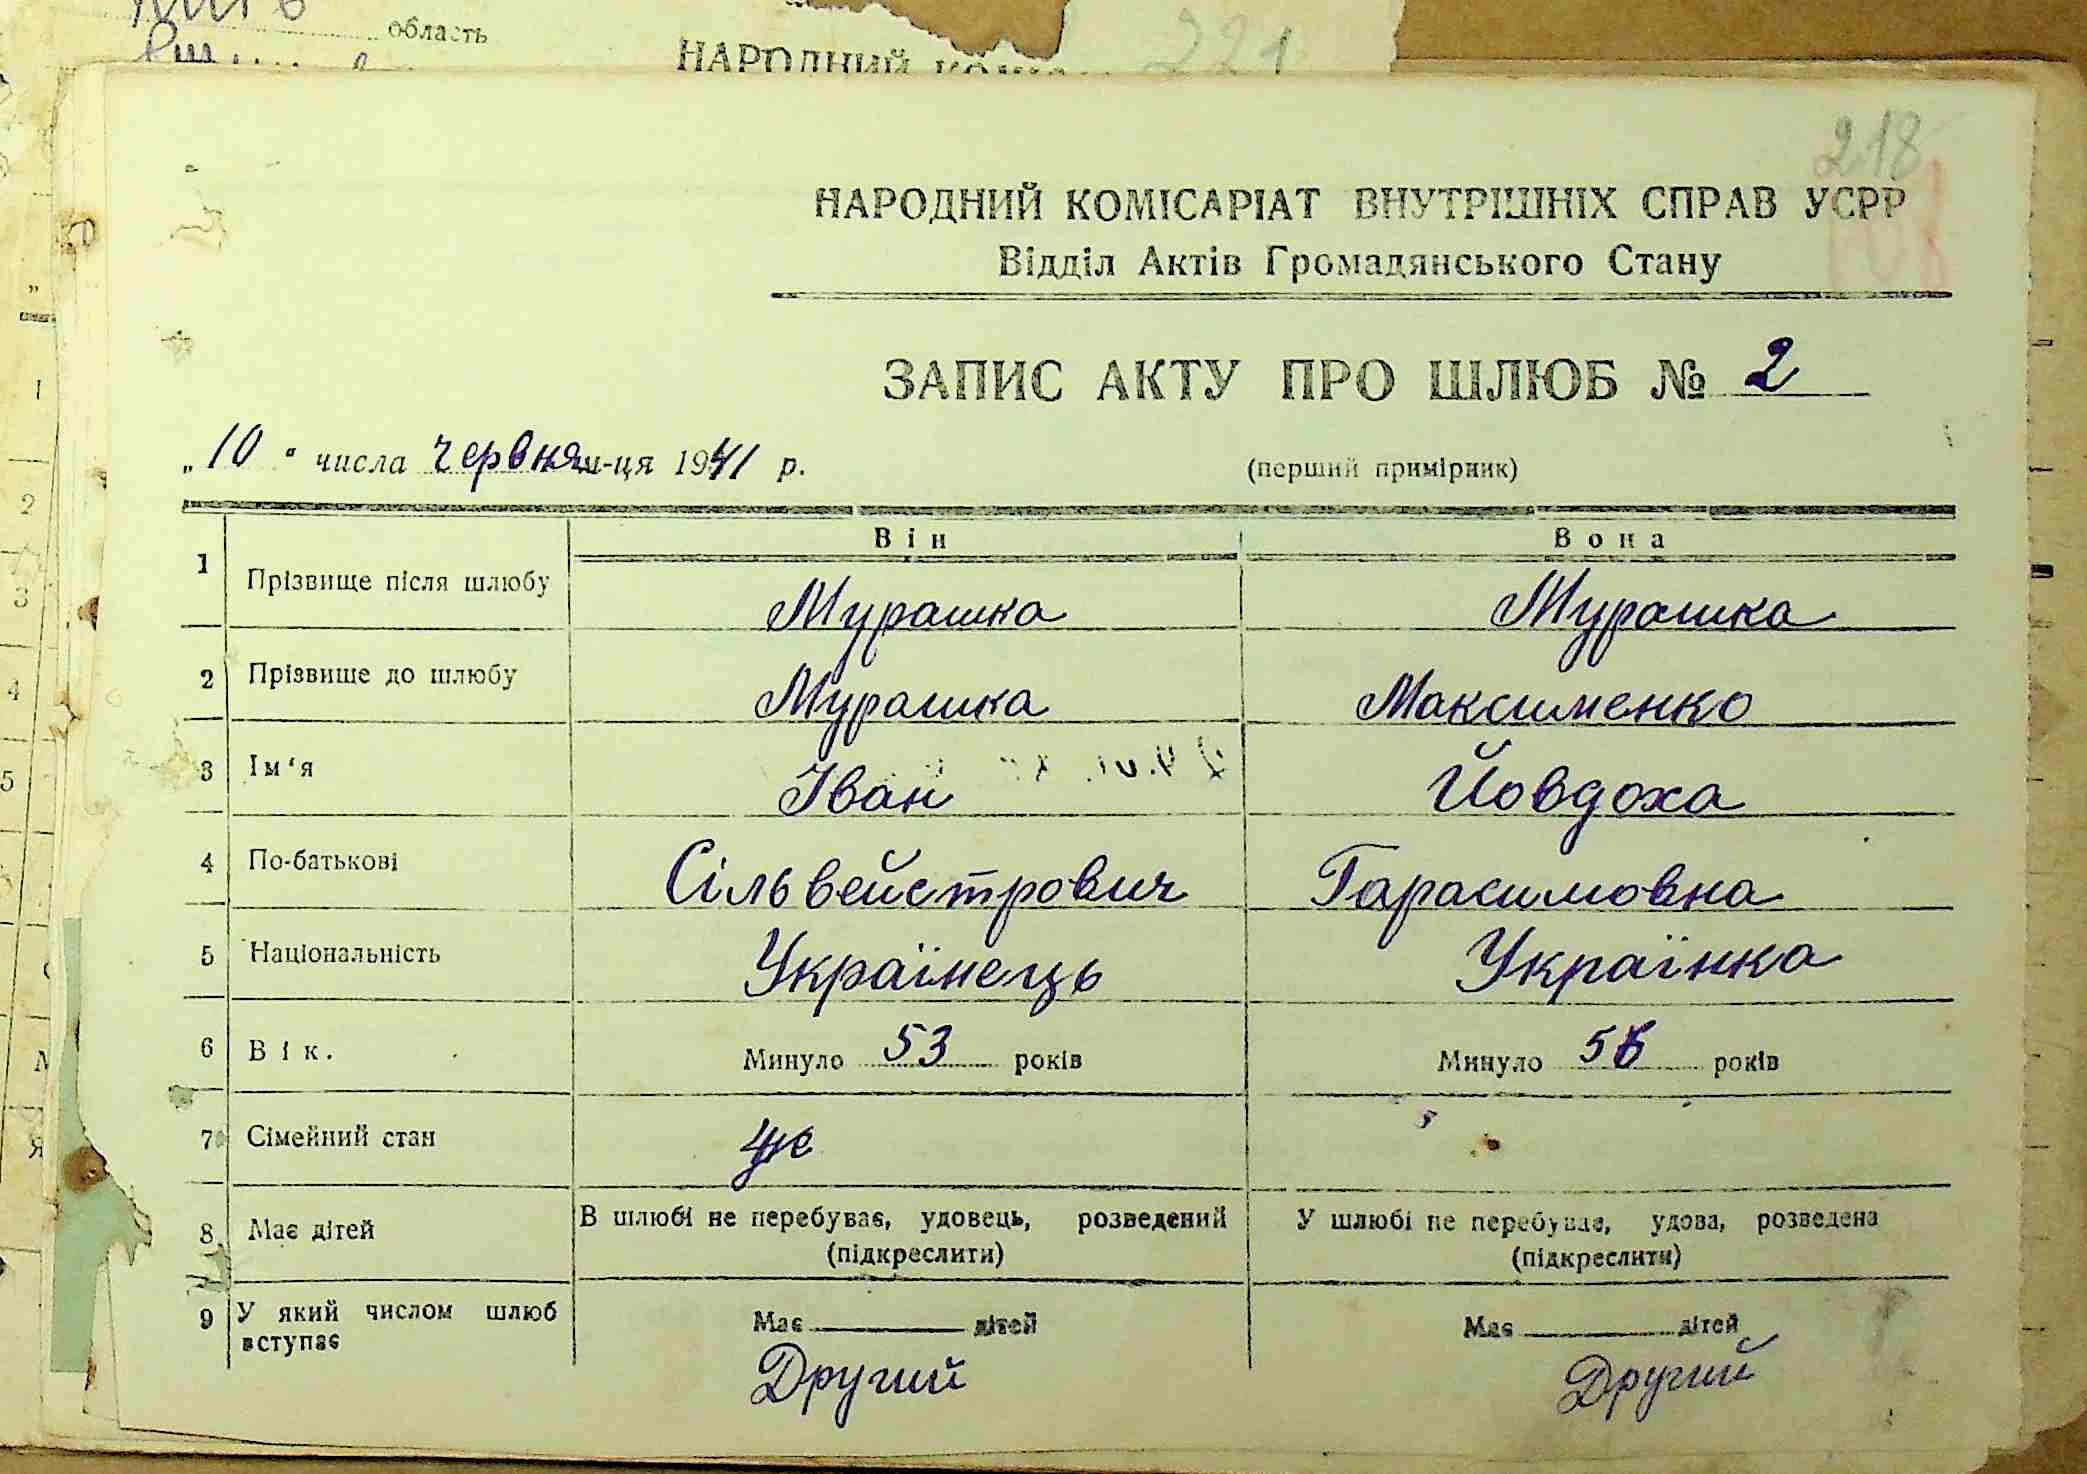 область
НАРОДНИЙ
221
218
НАРОДНИЙ КОМІСАРІАТ ВНУТРІШНІХ СПРАВ УСРР
Відділ Актів Громадянського Стану
ЗАПИС АКТУ ПРО ШЛЮБ № 2
„ 10 “ числа червня м-ця 1941 р.
(перший примірник)
Він Вона
1 Прізвище після шлюбу Мурашка Мурашка
2 Прізвише до шлюбу Мурашка Максименко
3 Ім‘я Іван Йовдоха
4 По-батькові Сільвейстрович Гарасимовна
5 Національність Українець Українка
6 Вік. Минуло 53 років Минуло років
7 Сімейний стан
8 Має дітей В шлюбі не перебуває, удовець, розведений У шлюбі не перебуває, удова, розведена
(підкреслити) (підкреслити)
9 У який числом шлюб вступає Має дітей Має дітей
Другий Другий